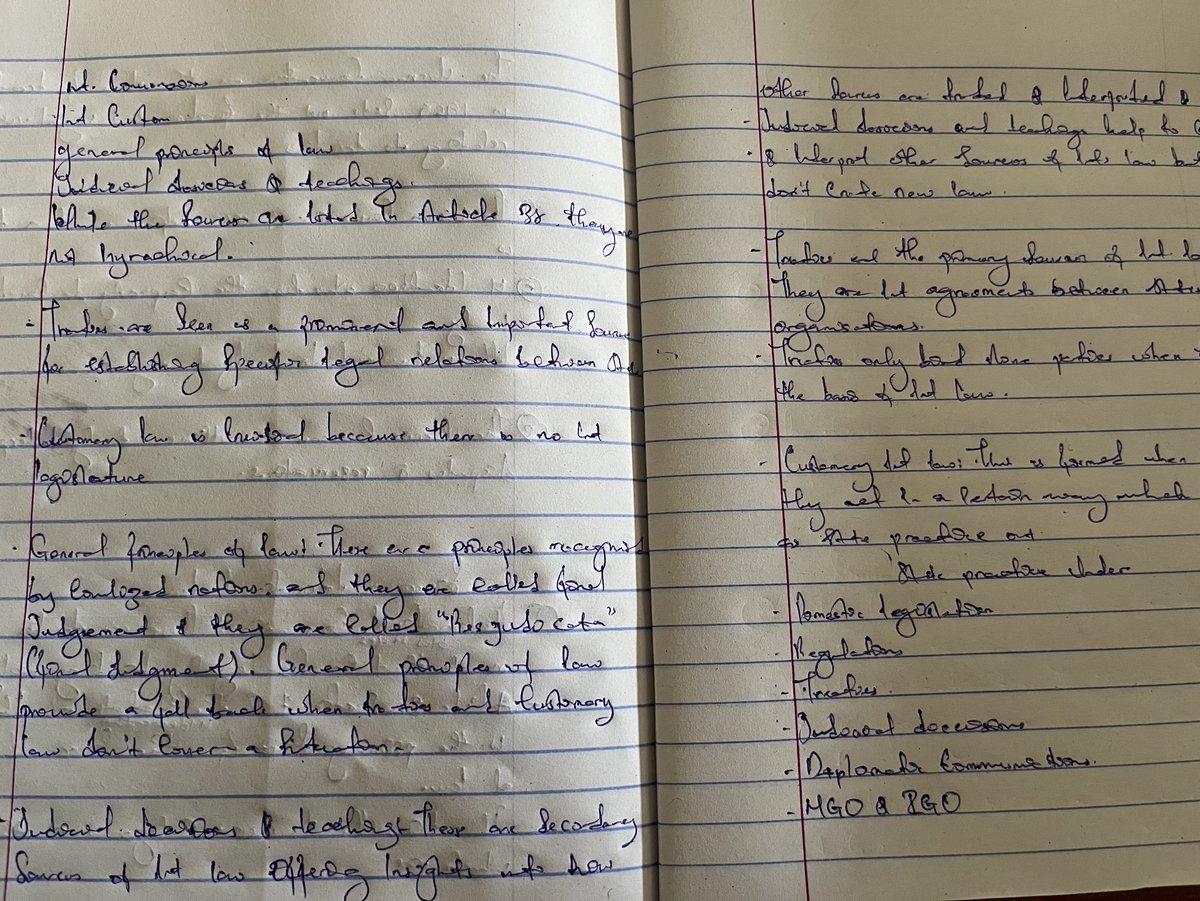 nt. Conversons
Int Custom
general principls of law
Judiceal doverees & teachings.
While the Sources are listed in Article 38. they are
not hyrachical.
- Treaties are Seen as a prominent and important Source
for establishing Specific legal relations between State
- Customary law is because there is no Int
legislature
- General Principles of law: These are principles recognis
by nations. and they are called final
Judgement & they are called "Resjudocata"
(final Judgment). General principles of law
provide a fall back when treaties and Customary
law don't Cover a Situation.
- Judiceal decesions & teachings These are Secondary
Sources of Int law Offering Insights into how
Other Sources are & Interpreted &
- Judiceal and teachings help to
- & Interpret other Sources of Int law but
don't Create new law.
- Treaties are the primary Sources of Int la
They are Int agreements between State
organisations.
- Treaties only parties when
the basis of Int law.
- Customary Int law: This is formed when
they act in a Certain way which
to State practice and
State practice Under
- Domestic legislation
- Regulations
- Treaties.
- Judiceal decesions
- Deplomatic Communications.
- MGO & PGO